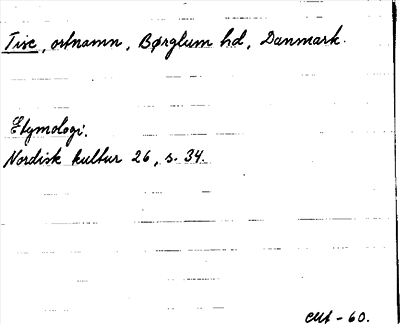 Tise, ortnamn, Børglum hd, Danmark.
Etymologi.
Nordisk kultur 26, s. 34.
-60.